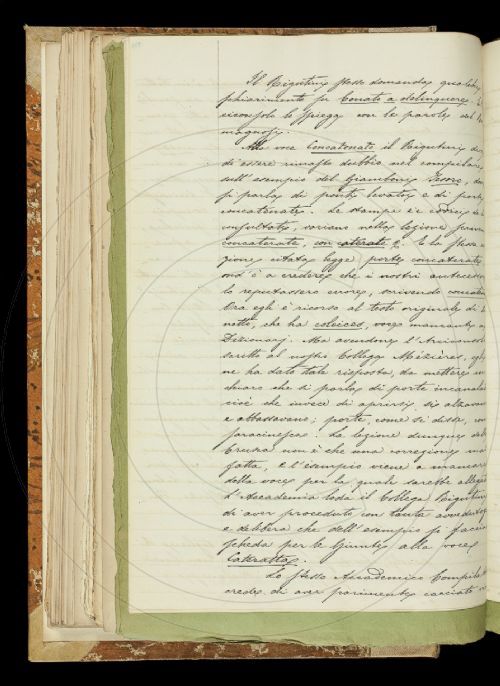 Il Rigutini stesso domanda qualche
schiarimento su Conato a delinquere.
riconsola lo spiega con le parole del
magnosi.
Alla voce Concatenato il Rigutini
di essere rimasto dubbio nel compilare
sull'esempio del Giamboni Tesoro,
si parla di ponti levatoi e di porte
concatenate. Le stampe e i codici
consultati, variano nella lezione
concaterate, con caterate &. E la stessa
gione citata legge porte concaterate,
ma è a credere che i nostri antecessori
la reputassero errore, scrivendo
Ora egli è ricorso al testo originale di
netto, che ha colveices, voce mancante
Dizionarj. Ma avendone l'Arciconsolo
scritto al nostro Collega Mézières,
ne ha dato tale risposta, da mettere in
chiaro che si parla di porte incanalate
cioè che invece di aprirsi si alzavano
e abbassavano; porte, come si disse,
saracinesca. La lezione dunque della
Crusca non è che una correzione mal
fatta, e l'esempio viene a mancare
della voce per la quale sarebbe allegato
L'Accademia loda il Collega Rigutini
di aver proceduto con tanta avvedutezza
e delibera che dell'esempio si faccia
scheda per la Giunta alla voce
Cateratta.
Lo stesso Accademico Compilatore
crede di aver parimente cacciato